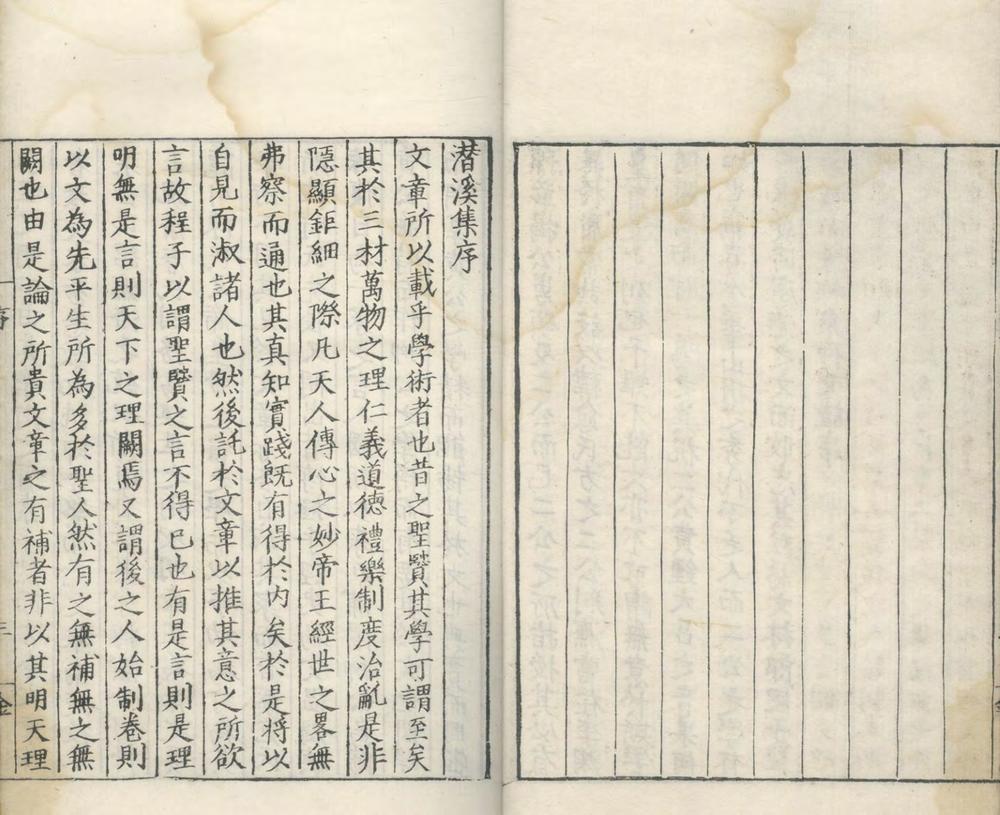 潜溪集序
文章所以載乎學術者也昔之聖賢其學可謂至矣
其於三材萬物之理仁義道德禮樂制度治亂是非
隱顯鉅細之際凡天人傳心之妙帝王經世之畧無
弗察而通也其真知實踐旣有得於內矣於是將以
自見而淑諸人也然後託於文章以推其意之所欲
言故程子以謂聖賢之言不得已也有是言則是理
明無是言則天下之理闕焉又謂後之人始制卷則
以文為先平生所為多於聖人然有之無補無之無
闕也由是論之所貴文章之有補者非以其明天理
序
三